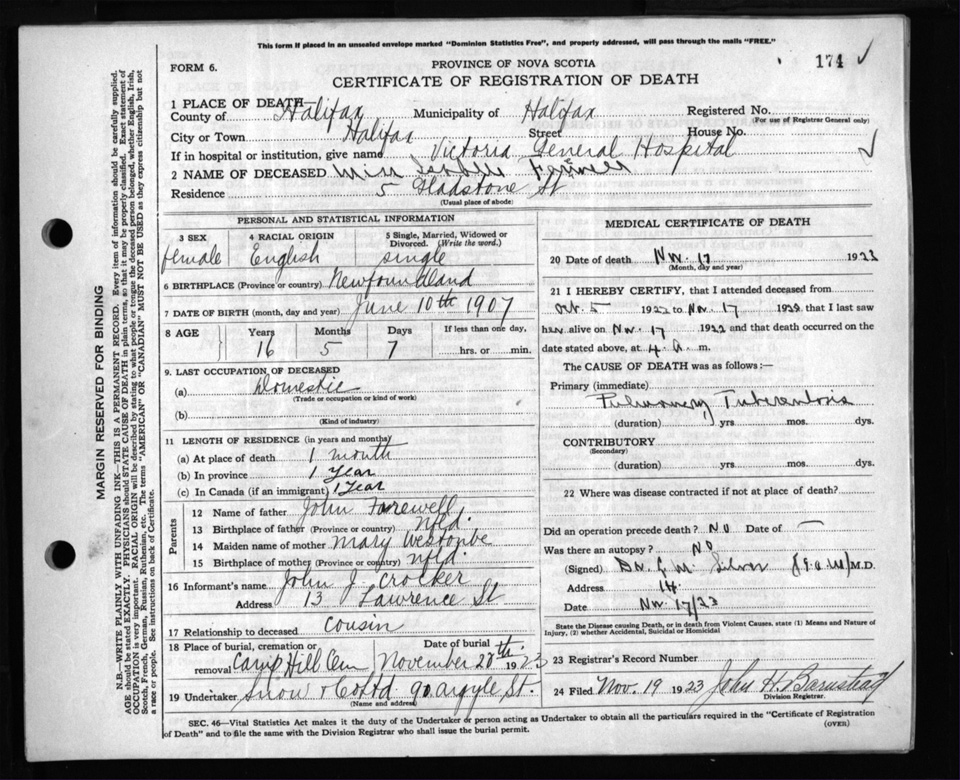 This form if placed in an unsealed envelope marked "Dominion Statistics Free", and properly addressed, will pass through the mails "FREE."
174 ✓
FORM 6.
PROVINCE OF NOVA SCOTIA
CERTIFICATE OF REGISTRATION OF DEATH
1 PLACE OF DEATH—
County of Halifax Municipality of Halifax Registered No.
(For use of Registrar General only)
City or Town Halifax Street House No.
If in hospital or institution, give name Victoria General Hospital ✓
2 NAME OF DECEASED Miss
Residence 5 Gladstone St
(Usual place of abode)
PERSONAL AND STATISTICAL INFORMATION
3 SEX 4 RACIAL ORIGIN 5 Single, Married, Widowed or Divorced. (Write the word.)
female English single
6 BIRTHPLACE (Province or country) Newfoundland
7 DATE OF BIRTH (month, day and year) June 10th 1907
8 AGE Years Months Days If less than one day,
16 5 7 hrs. or min.
9. LAST OCCUPATION OF DECEASED
(a) Domestic
(Trade or occupation or kind of work)
(b)
(Kind of industry)
11 LENGTH OF RESIDENCE (in years and months)
(a) At place of death 1 month
(b) In province 1 Year
(c) In Canada (if an immigrant) 1 Year
Parents
12 Name of father John Farewell
13 Birthplace of father (Province or country) Nfld.
14 Maiden name of mother Mary
15 Birthplace of mother (Province or country) Nfld.
16 Informant's name John J. Crocker
Address 13 Lawrence St
17 Relationship to deceased cousin
18 Place of burial, cremation or removal Camp Hill Cem Date of burial November 20th 1923
19 Undertaker Snow & Co Ltd 90 Argyle St.
(Name and address)
MEDICAL CERTIFICATE OF DEATH
20 Date of death Nov. 17 1923
(Month, day and year)
21 I HEREBY CERTIFY, that I attended deceased from
Oct. 5 192 to Nov. 17 192, that I last saw
her alive on Nov. 17 192 and that death occurred on the
date stated above, at 4 a m.
The CAUSE OF DEATH was as follows:—
Primary (immediate)
Pulmonary Tuberculosis
(duration) yrs. mos. dys.
CONTRIBUTORY
(Secondary)
(duration) yrs. mos. dys.
22 Where was disease contracted if not at place of death?
Did an operation precede death? No Date of —
Was there an autopsy? No
(Signed) M.D.
Address
Date Nov. 17/23
State the Disease causing Death, or in death from Violent Causes, state (1) Means and Nature of
Injury, (2) whether Accidental, Suicidal or Homicidal
23 Registrar's Record Number
24 Filed Nov. 19 1923 John H. Barnstead
Division Registrar.
SEC. 46—Vital Statistics Act makes it the duty of the Undertaker or person acting as Undertaker to obtain all the particulars required in the "Certificate of Registration
of Death" and to file the same with the Division Registrar who shall issue the burial permit.
(OVER)
MARGIN RESERVED FOR BINDING
N.B.—WRITE PLAINLY WITH UNFADING INK—THIS IS A PERMANENT RECORD. Every item of information should be carefully supplied.
AGE should be stated EXACTLY. PHYSICIANS should STATE CAUSE OF DEATH in plain terms, so that it may be properly classified. Exact statement of
OCCUPATION is very important. RACIAL ORIGIN will be described by stating to what people or tongue the deceased person belonged, whether English, Irish,
Scotch, French, German, Russian, Ruthenian, etc. The terms "AMERICAN" OR "CANADIAN" MUST NOT BE USED as they express citizenship but not
a race or people. See instructions on back of Certificate.